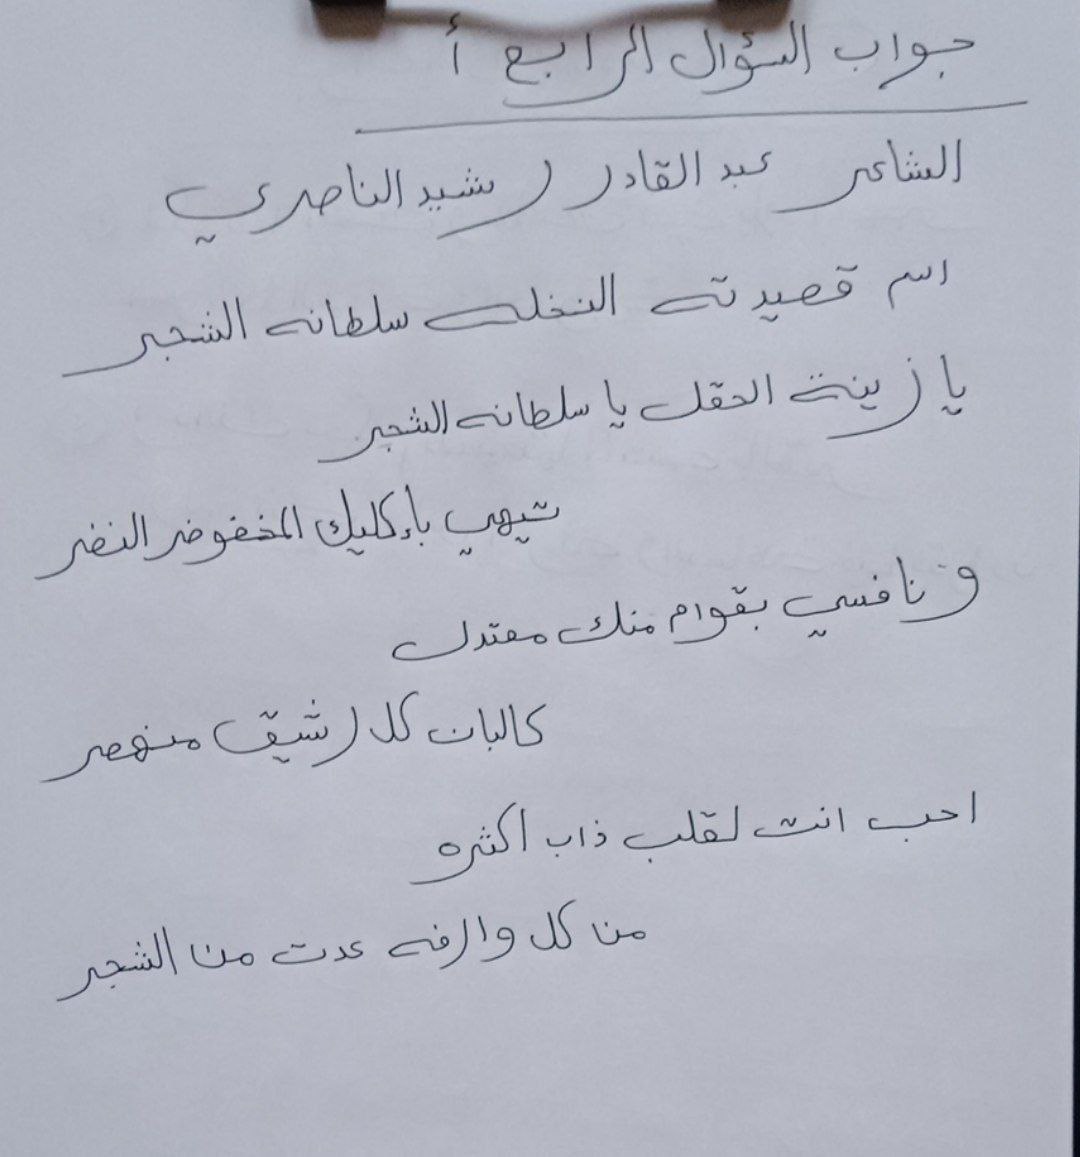 جواب السؤال الرابع أ
الشاعر عبد القادر رشيد الناصري
اسم قصيدته النخله سلطانه الشجر
يا زينة الحقل يا سلطانه الشجر
تيهي بإكليلك المخفوض النضر
ونافسي بقوام منك معتدل
كالبان كل رشيق منهصر
احب انت لقلب ذاب اكثره
من كل وارفه عدت من الشجر